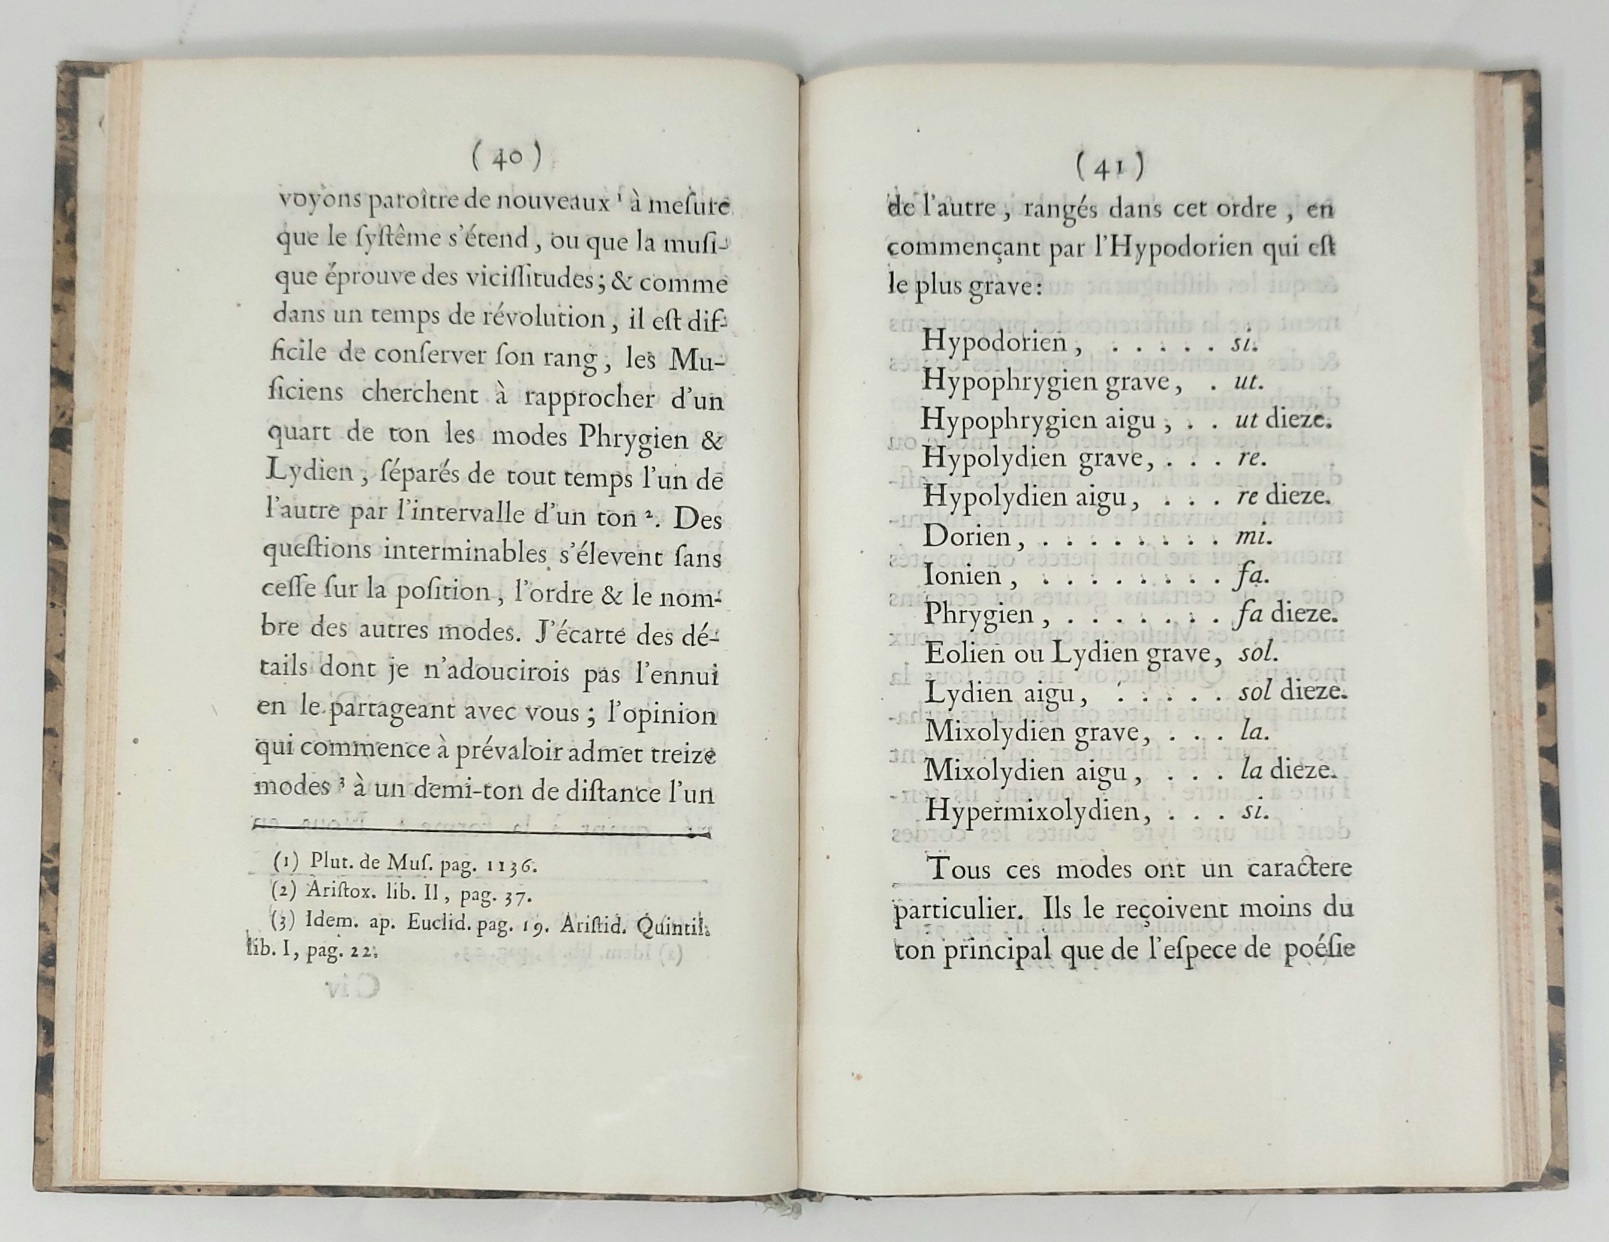 ( 40 )
voyons paroître de nouveaux ¹ à meſure
que le ſyſtême s'étend, ou que la muſi-
que éprouve des viciſſitudes ; & comme
dans un temps de révolution, il eſt dif-
ficile de conſerver ſon rang, les Mu-
ſiciens cherchent à rapprocher d'un
quart de ton les modes Phrygien &
Lydien, ſéparés de tout temps l'un de
l'autre par l'intervalle d'un ton ². Des
queſtions interminables s'élevent ſans
ceſſe ſur la poſition, l'ordre & le nom-
bre des autres modes. J'écarte des dé-
tails dont je n'adoucirois pas l'ennui
en le partageant avec vous ; l'opinion
qui commence à prévaloir admet treize
modes ³ à un demi-ton de diſtance l'un
(1) Plut. de Muſ. pag. 1136.
(2) Ariſtox. lib. II, pag. 37.
(3) Idem. ap. Euclid. pag. 19. Ariſtid. Quintil.
lib. I, pag. 22.
( 41 )
de l'autre, rangés dans cet ordre, en
commençant par l'Hypodorien qui eſt
le plus grave :
Hypodorien, . . . . . si.
Hypophrygien grave, . ut.
Hypophrygien aigu, . . ut dieze.
Hypolydien grave, . . . re.
Hypolydien aigu, . . . re dieze.
Dorien, . . . . . . . . mi.
Ionien, . . . . . . . . fa.
Phrygien, . . . . . . . fa dieze.
Eolien ou Lydien grave, sol.
Lydien aigu, . . . . . sol dieze.
Mixolydien grave, . . . la.
Mixolydien aigu, . . . la dieze.
Hypermixolydien, . . . si.
Tous ces modes ont un caractere
particulier. Ils le reçoivent moins du
ton principal que de l'eſpece de poéſie